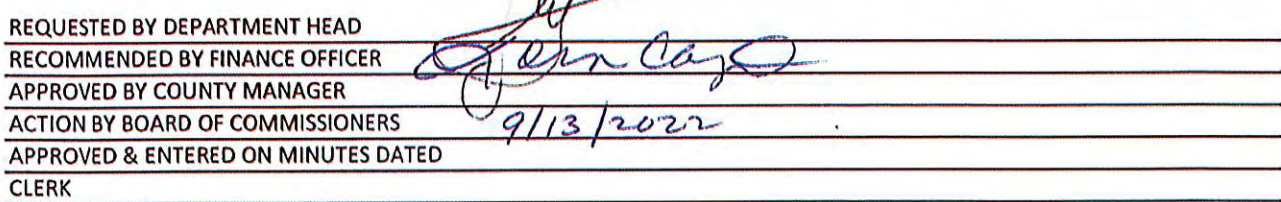 REQUESTED BY DEPARTMENT HEAD
RECOMMENDED BY FINANCE OFFICER
APPROVED BY COUNTY MANAGER
ACTION BY BOARD OF COMMISSIONERS 9/13/2022
APPROVED & ENTERED ON MINUTES DATED
CLERK